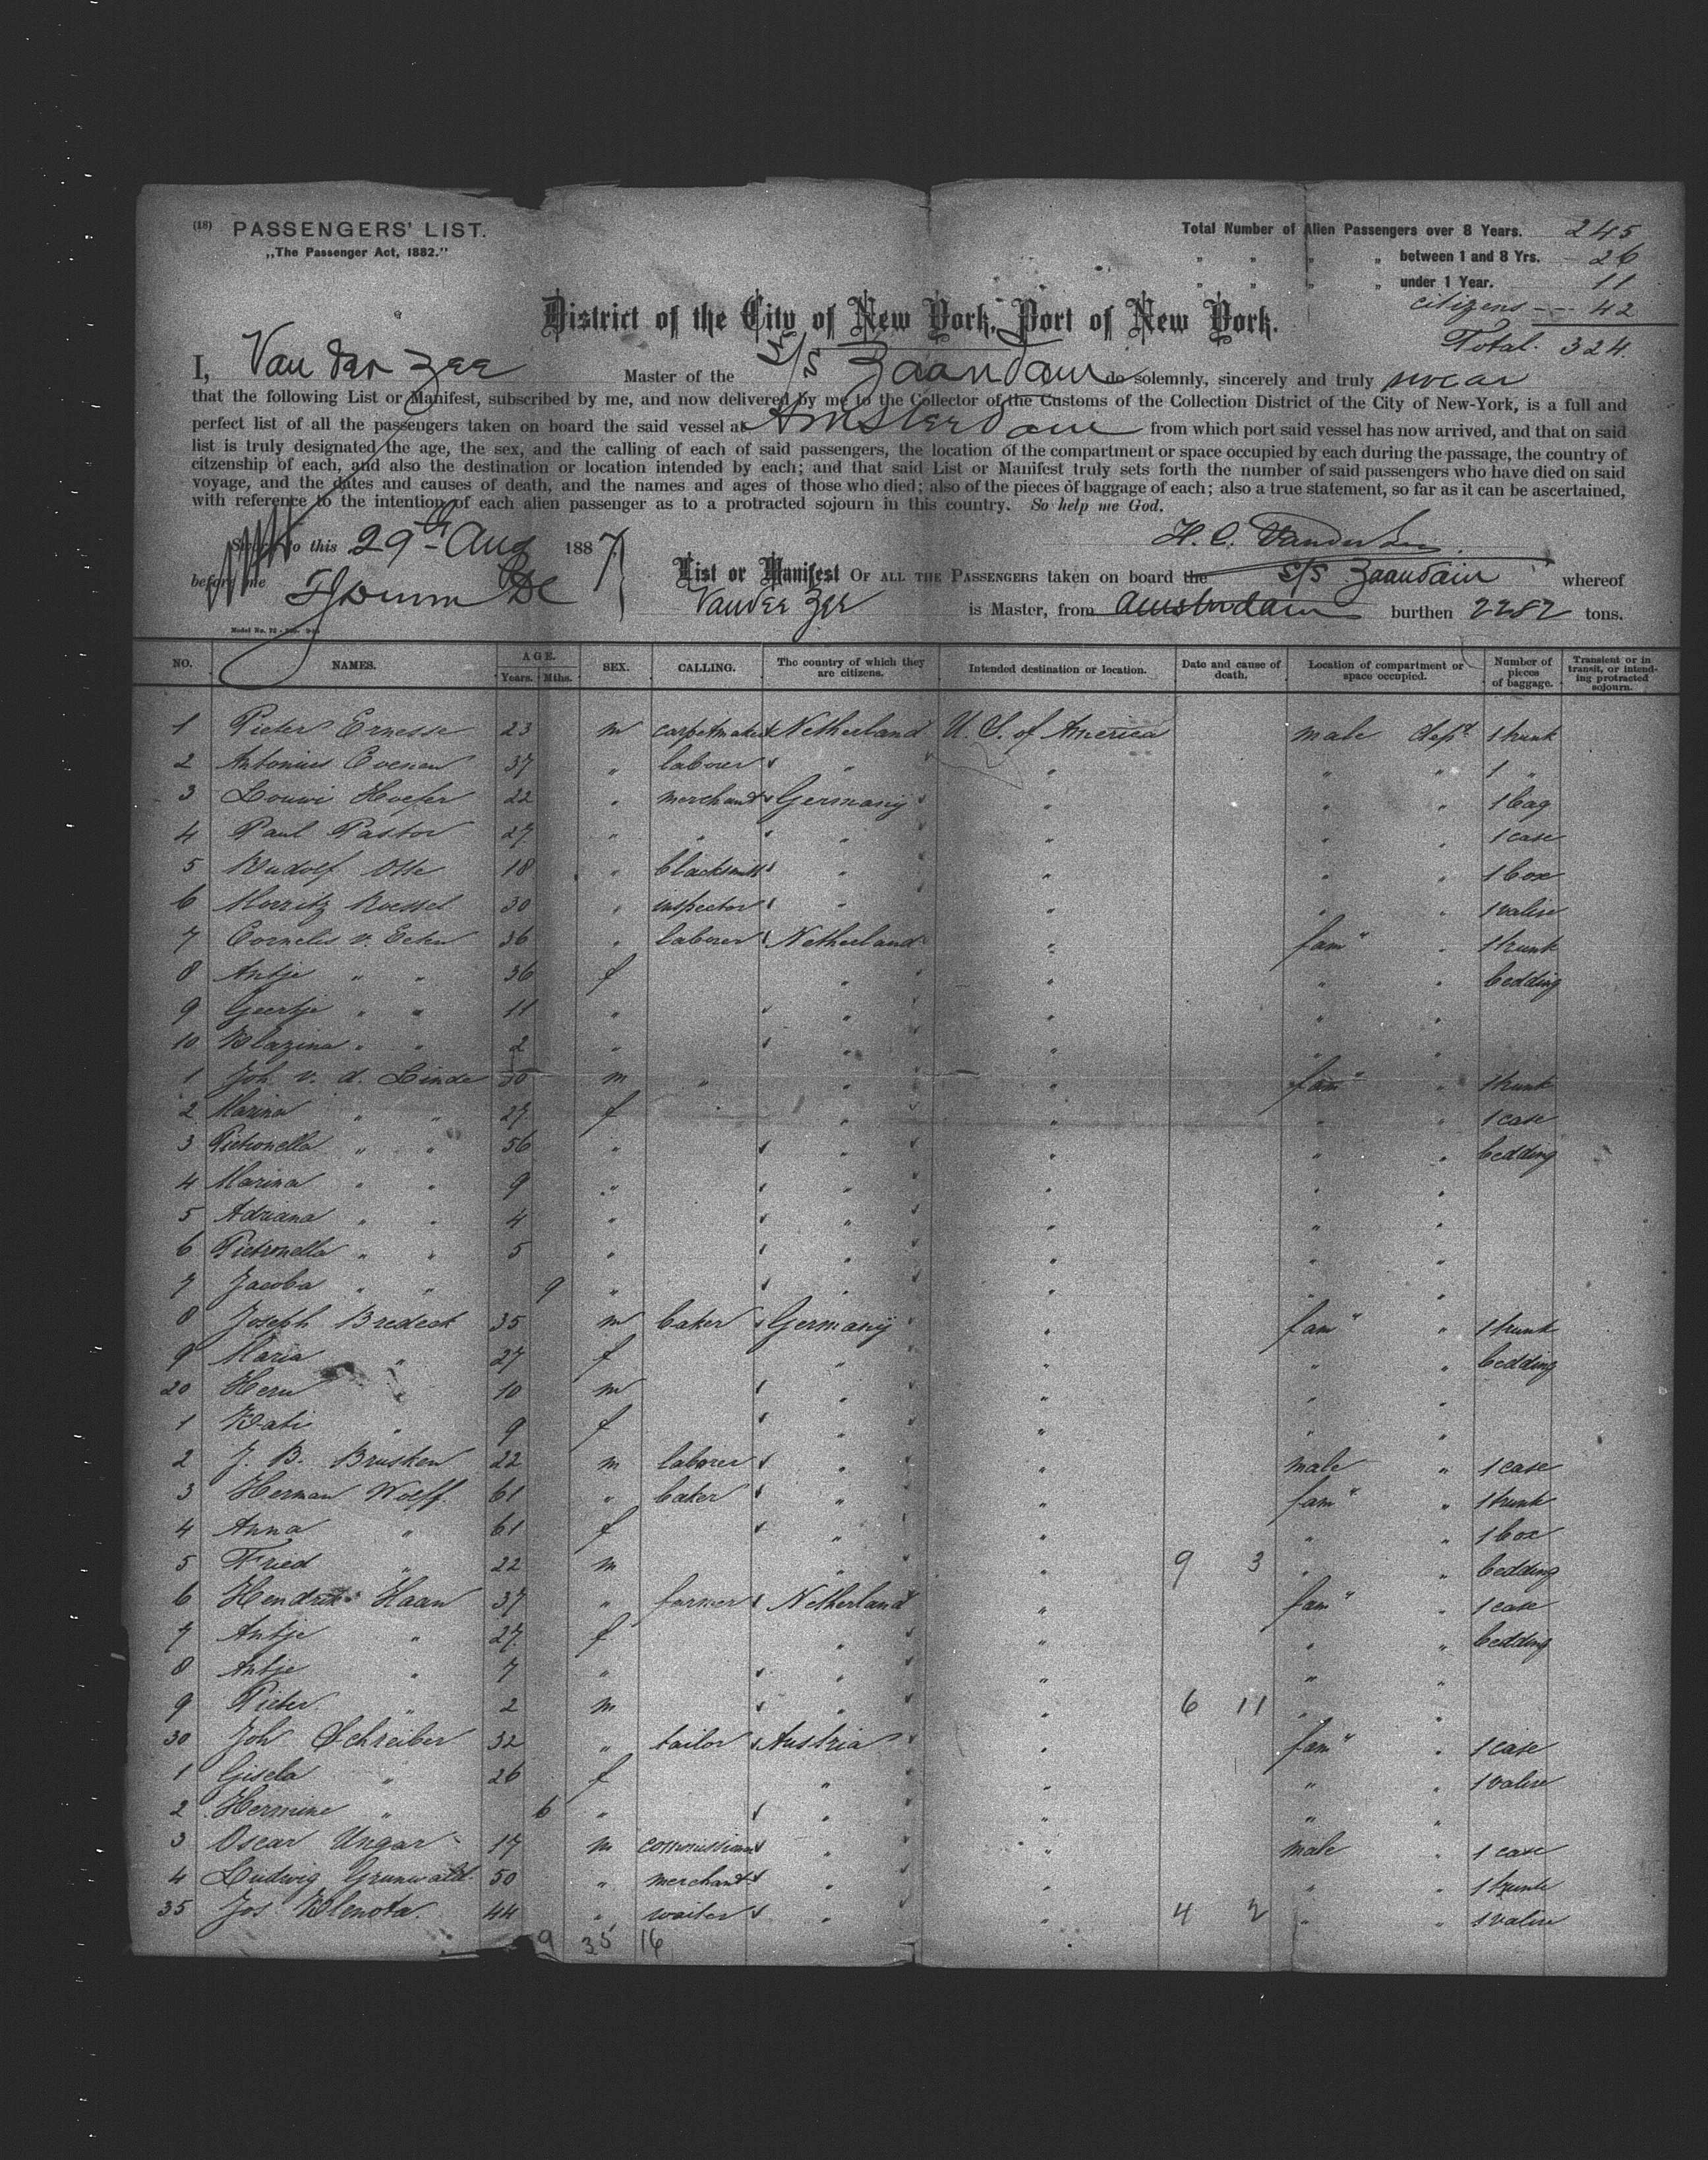 (18) PASSENGERS' LIST.
„The Passenger Act, 1882."
Total Number of Alien Passengers over 8 Years. 245
„ „ „ „ between 1 and 8 Yrs. 26
„ „ „ „ under 1 Year. 11
citizens --- 42
Total. 324.
District of the City of New York, Port of New York.
I, Van der Zee Master of the S/S Zaandam do solemnly, sincerely and truly swear
that the following List or Manifest, subscribed by me, and now delivered by me to the Collector of the Customs of the Collection District of the City of New-York, is a full and
perfect list of all the passengers taken on board the said vessel at Amsterdam from which port said vessel has now arrived, and that on said
list is truly designated the age, the sex, and the calling of each of said passengers, the location of the compartment or space occupied by each during the passage, the country of
citzenship of each, and also the destination or location intended by each; and that said List or Manifest truly sets forth the number of said passengers who have died on said
voyage, and the dates and causes of death, and the names and ages of those who died; also of the pieces of baggage of each; also a true statement, so far as it can be ascertained,
with reference to the intention of each alien passenger as to a protracted sojourn in this country. So help me God.
Sworn to this 29th Aug 1887
H. C. Vander Zee
before me
List or Manifest OF ALL THE PASSENGERS taken on board the S/S Zaandam whereof
Vander Zee is Master, from Amsterdam burthen 2282 tons.
NO. NAMES. AGE. Years. Mths. SEX. CALLING. The country of which they are citizens. Intended destination or location. Date and cause of death. Location of compartment or space occupied. Number of pieces of baggage. Transient or in transit, or intending protracted sojourn.
1 Pieter Ernesse 23 m carpetmaker Netherland U. S. of America male dept 1 trunk
2 Antonius Evenen 37 „ laborer „ „ „ „ 1 „
3 Louwi Hoefer 22 „ merchant Germany „ „ „ 1 bag
4 Paul Pastor 27 „ „ „ „ „ „ 1 case
5 Rudolf Otte 18 „ blacksmith „ „ „ „ 1 box
6 Morritz Roessel 30 „ inspector „ „ „ „ 1 valise
7 Cornelis v. Eeten 36 „ laborer Netherland „ fam „ 1 trunk
8 Antje „ „ 36 f „ „ „ „ bedding
9 Geertje „ „ 11 „ „ „ „ „
10 Klazina „ „ 2 „ „ „ „ „
1 Joh. v. d. Linde 30 m „ „ „ fam „ 1 trunk
2 Marina „ „ 27 f „ „ „ „ 1 case
3 Pietronella „ „ 56 „ „ „ „ „ bedding
4 Marina „ „ 9 „ „ „ „ „
5 Adriana „ „ 4 „ „ „ „ „
6 Pietronella „ „ 5 „ „ „ „ „
7 Jacoba „ „ 9 „ „ „ „ „
8 Joseph Bredeck 35 m baker Germany „ fam „ 1 trunk
9 Maria „ 27 f „ „ „ „ bedding
20 Herm „ 10 m „ „ „ „
1 Kati „ 9 f „ „ „ „
2 J. B. Brusken 22 m laborer „ „ male „ 1 case
3 Herman Wolff. 61 „ baker „ „ fam „ 1 trunk
4 Anna „ 61 f „ „ „ „ 1 box
5 Fried „ 22 m „ „ 9 3 „ „ bedding
6 Hendrik Haan 37 „ farmer Netherland „ fam „ 1 case
7 Antje „ 27 f „ „ „ „ bedding
8 Antje „ 7 „ „ „ „ „
9 Pieter „ 2 m „ „ 6 11 „ „
30 Joh Schreiber 32 „ tailor Austria „ fam „ 1 case
1 Gisela „ 26 f „ „ „ „ 1 valise
2 Hermine „ 6 „ „ „ „ „
3 Oscar Ungar 17 m „ „ male „ 1 case
4 Ludwig Grunwald 50 „ merchant „ „ „ „ 1 trunk
35 Jos Klenota. 44 „ waiter „ „ 4 2 „ „ 1 valise
9 35 16